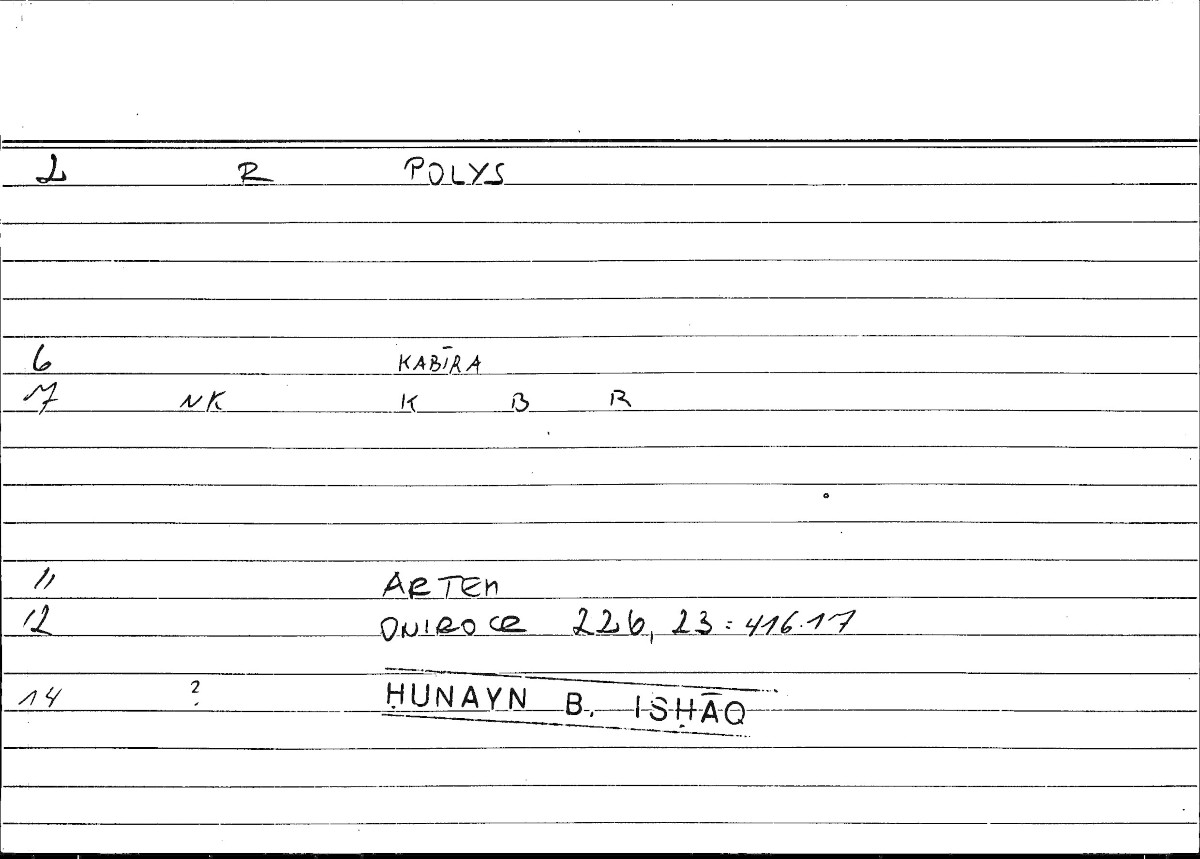 2 R POLYS
6 KABĪRA
7 NK K B R
11 ARTEM
12 ONIROCR 226, 23 : 416.17
14 ? ḤUNAYN B. ISḤĀQ